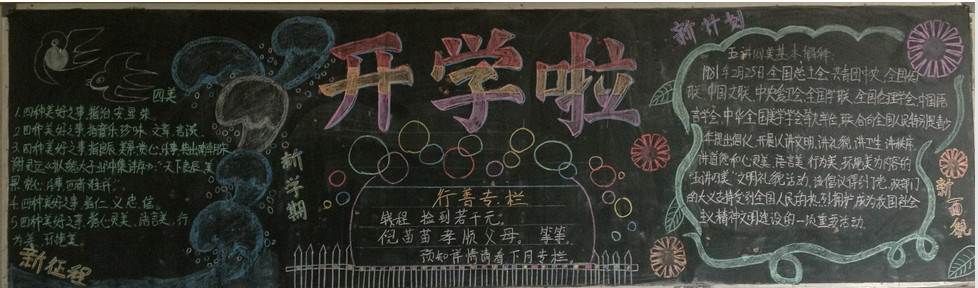 四美
1.四种美好之事,指治、安、显、荣
2.四种美好之事,指音乐、珍味、文章、言谈
3.四种美好之事,指良辰、美景、赏心、乐事
天下良辰、美
景、赏心、乐事,四者难并。
4.四种美好之事,指仁、义、忠、信。
5.四种美好之事,指心灵美、语言美、行
为美、环境美。
新征程
新学期
开学啦
行善专栏
钱程 捡到若干元。
倪苗苗孝顺父母。等等。
预知详情请看下月专栏。
新计划
五讲四美基本解释:
1981年2月25日,全国总工会、共青团中央、全国妇
联、中国文联、中央爱卫会、全国学联、全国伦理学会、中国语
言学会、中华全国美学学会等九单位,联合向全国人民特别是青少
年提出倡议,开展以讲文明、讲礼貌、讲卫生、讲秩序、
讲道德和心灵美、语言美、行为美、环境美为内容的
“五讲四美”文明礼貌活动。
社
会主义精神文明建设的一项重要活动。
新面貌